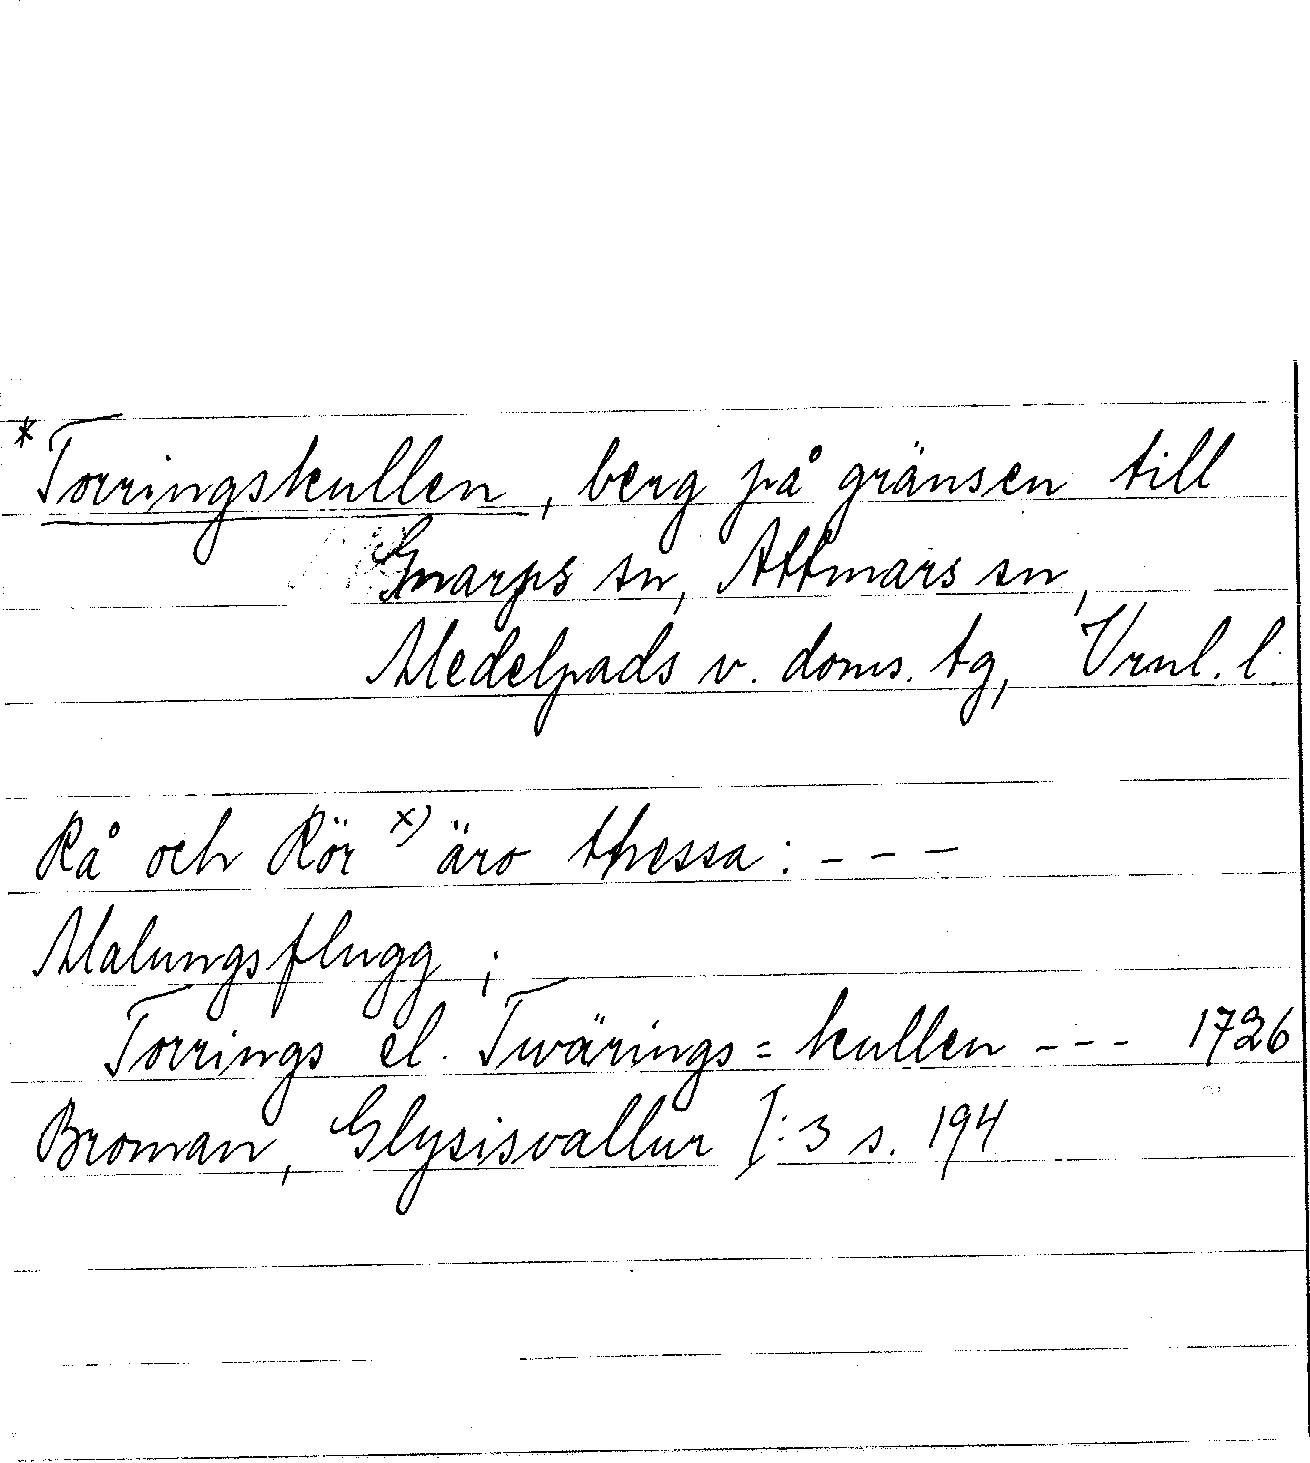 *Torringskullen, berg på gränsen till
Gnarps sn, Attmars sn,
Medelpads v. doms. tg, Vrnl. l.
Rå och Rör x) äro thessa: - - -
Malungsflugg ;
Torrings el. Twärings = kullen - - - 1726
Broman, Glysisvallur I:3 s. 194